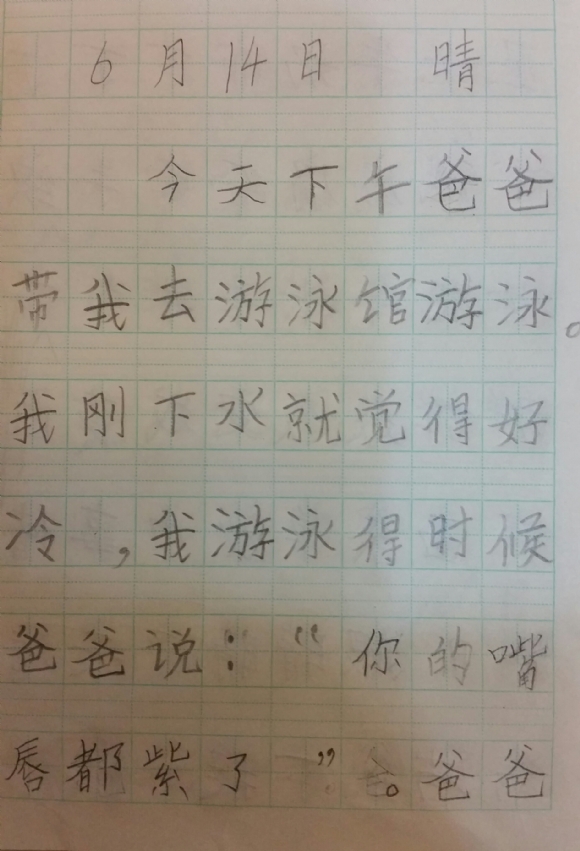 6月14日 晴
今天下午爸爸
带我去游泳馆游泳。
我刚下水就觉得好
冷，我游泳得时候
爸爸说：“你的嘴
唇都紫了”。爸爸